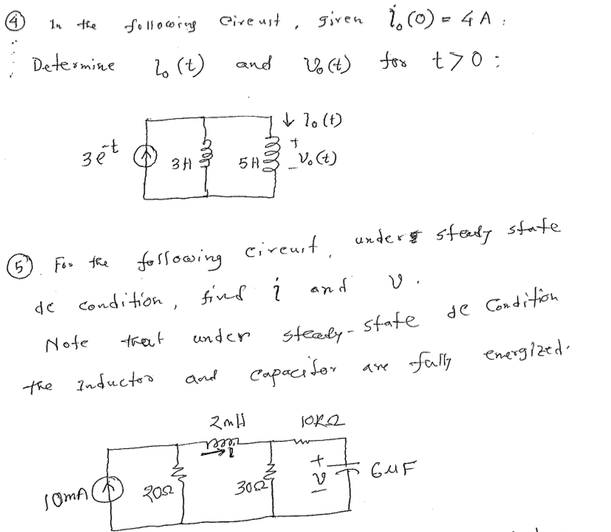 ④ In the following circuit, given i₀(0) = 4 A :
Determine i₀(t) and v₀(t) for t > 0 :
↓ i₀(t)
3e⁻ᵗ 3H 5H + v₀(t) −
⑤ For the following circuit, under steady state
dc condition, find i and v.
Note that under steady-state dc condition
the inductor and capacitor are fully energized.
2mH 10KΩ
→ i
10mA 20Ω 30Ω + v − 6μF